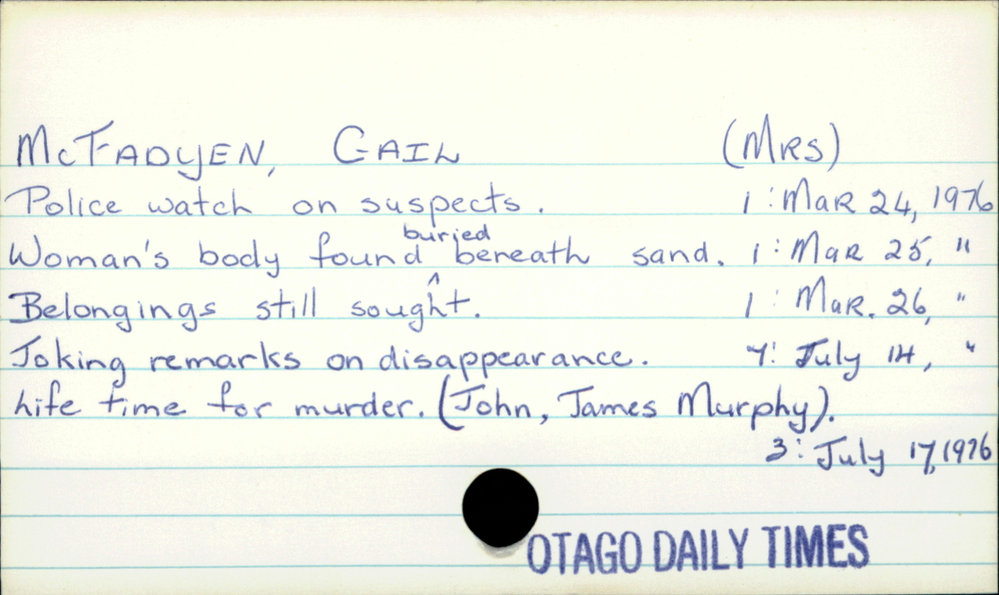 McFADYEN, GAIL (MRS)
Police watch on suspects. 1: MAR 24, 1976
Woman's body found buried beneath sand. 1: MAR 25, "
Belongings still sought. 1: MAR. 26, "
Joking remarks on disappearance. 4: July 14, "
Life time for murder. (John, James Murphy).
3: July 17, 1976
OTAGO DAILY TIMES